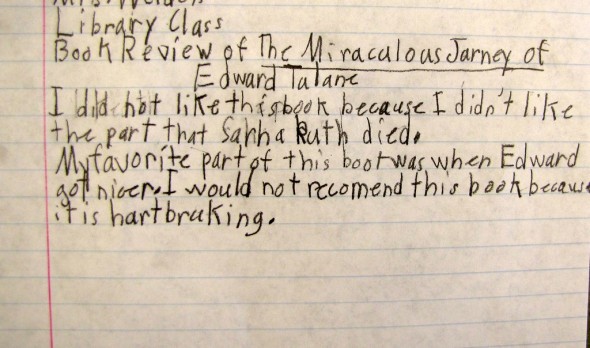 Library Class
Book Review of The Miraculous Jarney of
Edward Tulane
I did not like this book because I didn't like
the part that Sahha Ruth died.
My favorite part of this boot was when Edward
got nicer. I would not recomend this book because
it is hartbraking.